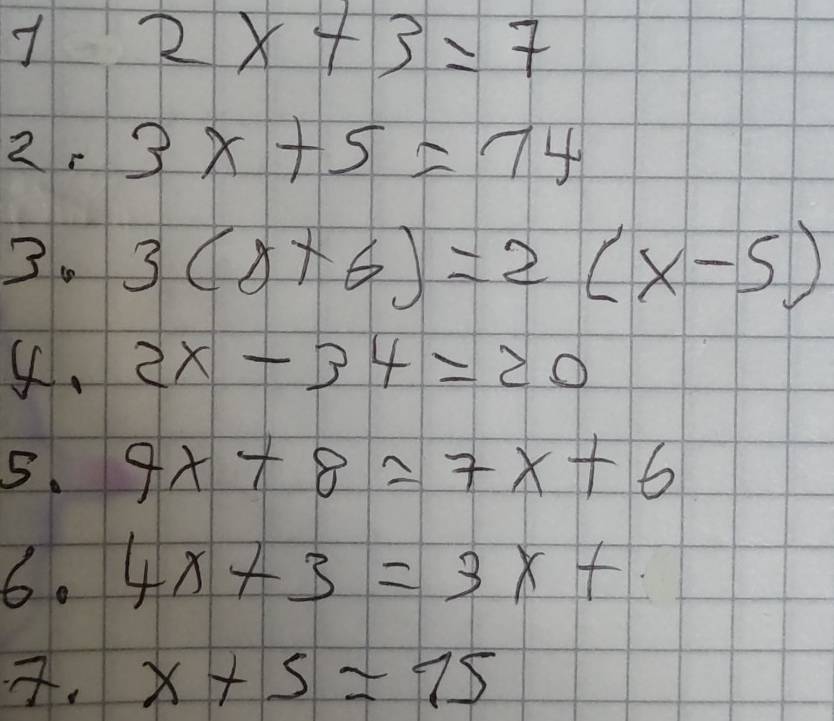 1 2x+3=7
2. 3x+5=14
3. 3(x+6)=2(x-5)
4. 2x-34=20
5. 9x+8=7x+6
6. 4x+3=3x+
7. x+5=15